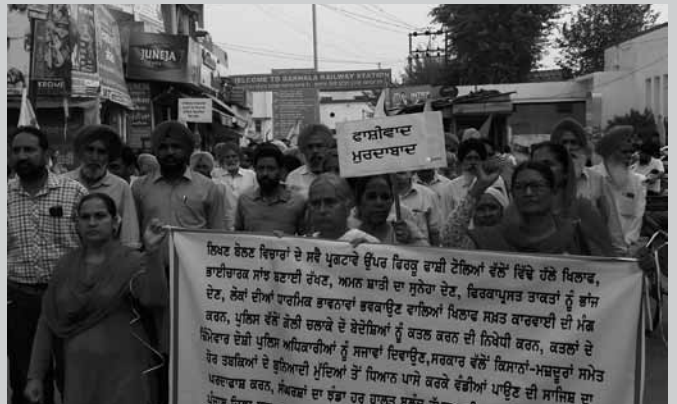 JUNEJA
XROME
WELCOME TO BARNALA RAILWAY STATION
ਫਾਸ਼ੀਵਾਦ
ਮੁਰਦਾਬਾਦ
ਲਿਖਣ ਬੋਲਣ ਵਿਚਾਰਾਂ ਦੇ ਸਵੈ ਪ੍ਰਗਟਾਵੇ ਉੱਪਰ ਫਿਰਕੂ ਫਾਸ਼ੀ ਟੋਲਿਆਂ ਵੱਲੋਂ ਵਿੱਢੇ ਹੱਲੇ ਖਿਲਾਫ,
ਭਾਈਚਾਰਕ ਸਾਂਝ ਬਣਾਈ ਰੱਖਣ, ਅਮਨ ਸ਼ਾਂਤੀ ਦਾ ਸੁਨੇਹਾ ਦੇਣ, ਫਿਰਕਾਪ੍ਰਸਤ ਤਾਕਤਾਂ ਨੂੰ ਭਾਂਜ
ਦੇਣ, ਲੋਕਾਂ ਦੀਆਂ ਧਾਰਮਿਕ ਭਾਵਨਾਵਾਂ ਭੜਕਾਉਣ ਵਾਲਿਆਂ ਖਿਲਾਫ ਸਖ਼ਤ ਕਾਰਵਾਈ ਦੀ ਮੰਗ
ਕਰਨ, ਪੁਲਿਸ ਵੱਲੋਂ ਗੋਲੀ ਚਲਾਕੇ ਦੋ ਬੇਦੋਸ਼ਿਆਂ ਨੂੰ ਕਤਲ ਕਰਨ ਦੀ ਨਿਖੇਧੀ ਕਰਨ, ਕਤਲਾਂ ਦੇ
ਜਿੰਮੇਵਾਰ ਦੋਸ਼ੀ ਪੁਲਿਸ ਅਧਿਕਾਰੀਆਂ ਨੂੰ ਸਜਾਵਾਂ ਦਿਵਾਉਣ,ਸਰਕਾਰ ਵੱਲੋਂ ਕਿਸਾਨਾਂ-ਮਜ਼ਦੂਰਾਂ ਸਮੇਤ
ਹੋਰ ਤਬਕਿਆਂ ਦੇ ਬੁਨਿਆਦੀ ਮੁੱਦਿਆਂ ਤੋਂ ਧਿਆਨ ਪਾਸੇ ਕਰਕੇ ਵੰਡੀਆਂ ਪਾਉਣ ਦੀ ਸਾਜਿਸ਼ ਦਾ
ਪਰਦਾਫਾਸ਼ ਕਰਨ, ਸੰਘਰਸ਼ਾਂ ਦਾ ਝੰਡਾ ਹਰ ਹਾਲਤ ਬੁਲੰਦ